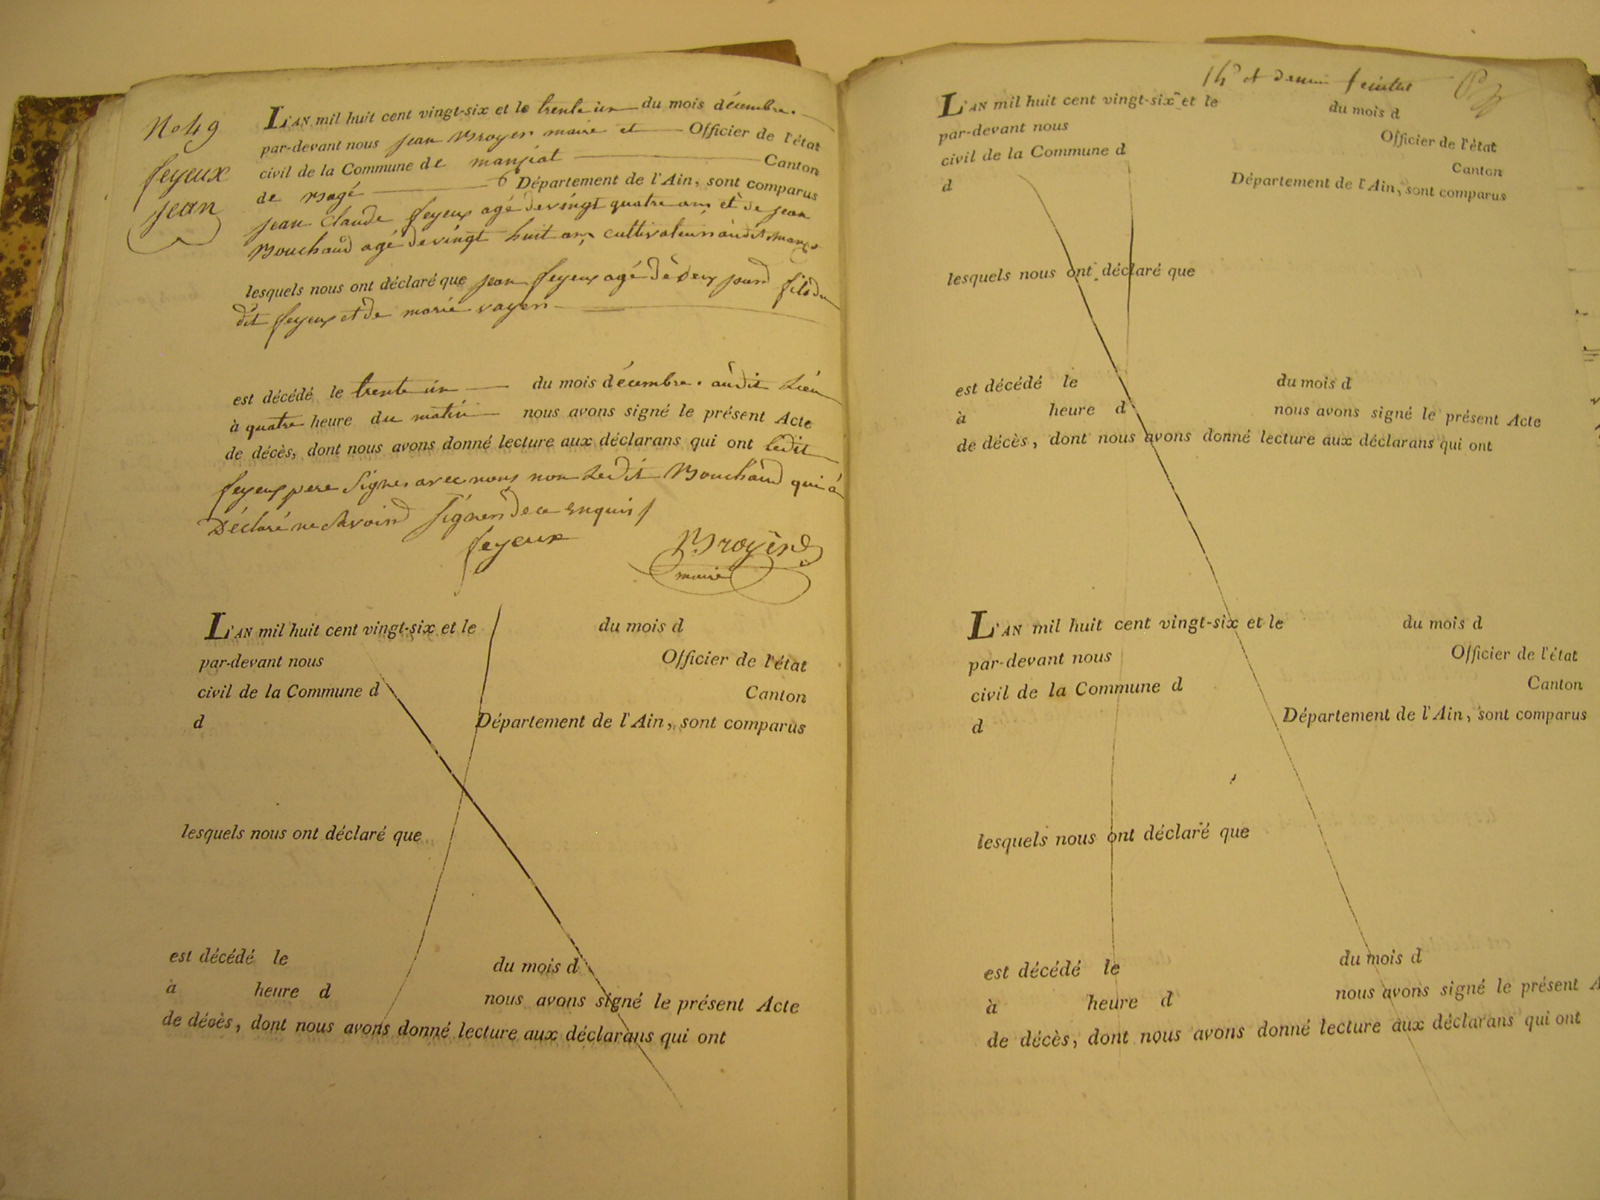 No 49
feyeux
jean
L'AN mil huit cent vingt-six et le trente un du mois décembre.
par-devant nous jean Broyer maire et Officier de l'état
civil de la Commune de manziat Canton
de Bagé Département de l'Ain, sont comparus
jean Claude feyeux agé de vingt quatre ans et de jean
Bouchaud agé de vingt huit ans cultivateurs audit
lesquels nous ont déclaré que jean feyeux agé de deux jours fils du
dit feyeux et de marie
est décédé le trente un du mois décembre. audit Lieu
à quatre heure du matin nous avons signé le présent Acte
de décès, dont nous avons donné lecture aux déclarans qui ont ledit
feyeux pere Signé avec nous non Ledit Bouchaud qui a
Déclaré ne Savoir Signer de ce Enquis
feyeux Broyer
maire
L'AN mil huit cent vingt-six et le du mois d
par-devant nous Officier de l'état
civil de la Commune d Canton
d Département de l'Ain, sont comparus
lesquels nous ont déclaré que
est décédé le du mois d
à heure d nous avons signé le présent Acte
de décès, dont nous avons donné lecture aux déclarans qui ont
14e et dernier feuillet
L'AN mil huit cent vingt-six et le du mois d
par-devant nous Officier de l'état
civil de la Commune d Canton
d Département de l'Ain, sont comparus
lesquels nous ont déclaré que
est décédé le du mois d
à heure d nous avons signé le présent Acte
de décès, dont nous avons donné lecture aux déclarans qui ont
L'AN mil huit cent vingt-six et le du mois d
par-devant nous Officier de l'état
civil de la Commune d Canton
d Département de l'Ain, sont comparus
lesquels nous ont déclaré que
est décédé le du mois d
à heure d nous avons signé le présent A
de décès, dont nous avons donné lecture aux déclarans qui ont